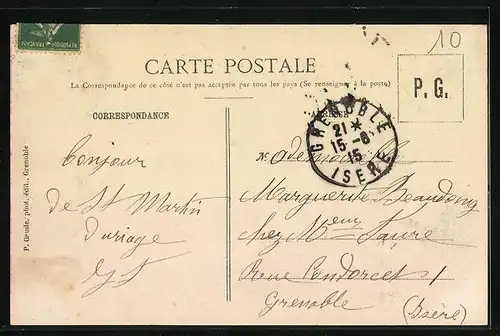 10
CARTE POSTALE
La Correspondance de ce côté n'est pas acceptée par tous les pays (Se renseigner à la poste)
P. G.
CORRESPONDANCE
GRENOBLE
21 *
15 - 6
15
ISERE
P. Grude, phot. édit., Grenoble
Bonjour
de St Martin
d'Uriage
Mademoiselle
Marguerite
chez Mme Faure
Rue Condorcet 1
Grenoble
(Isère)